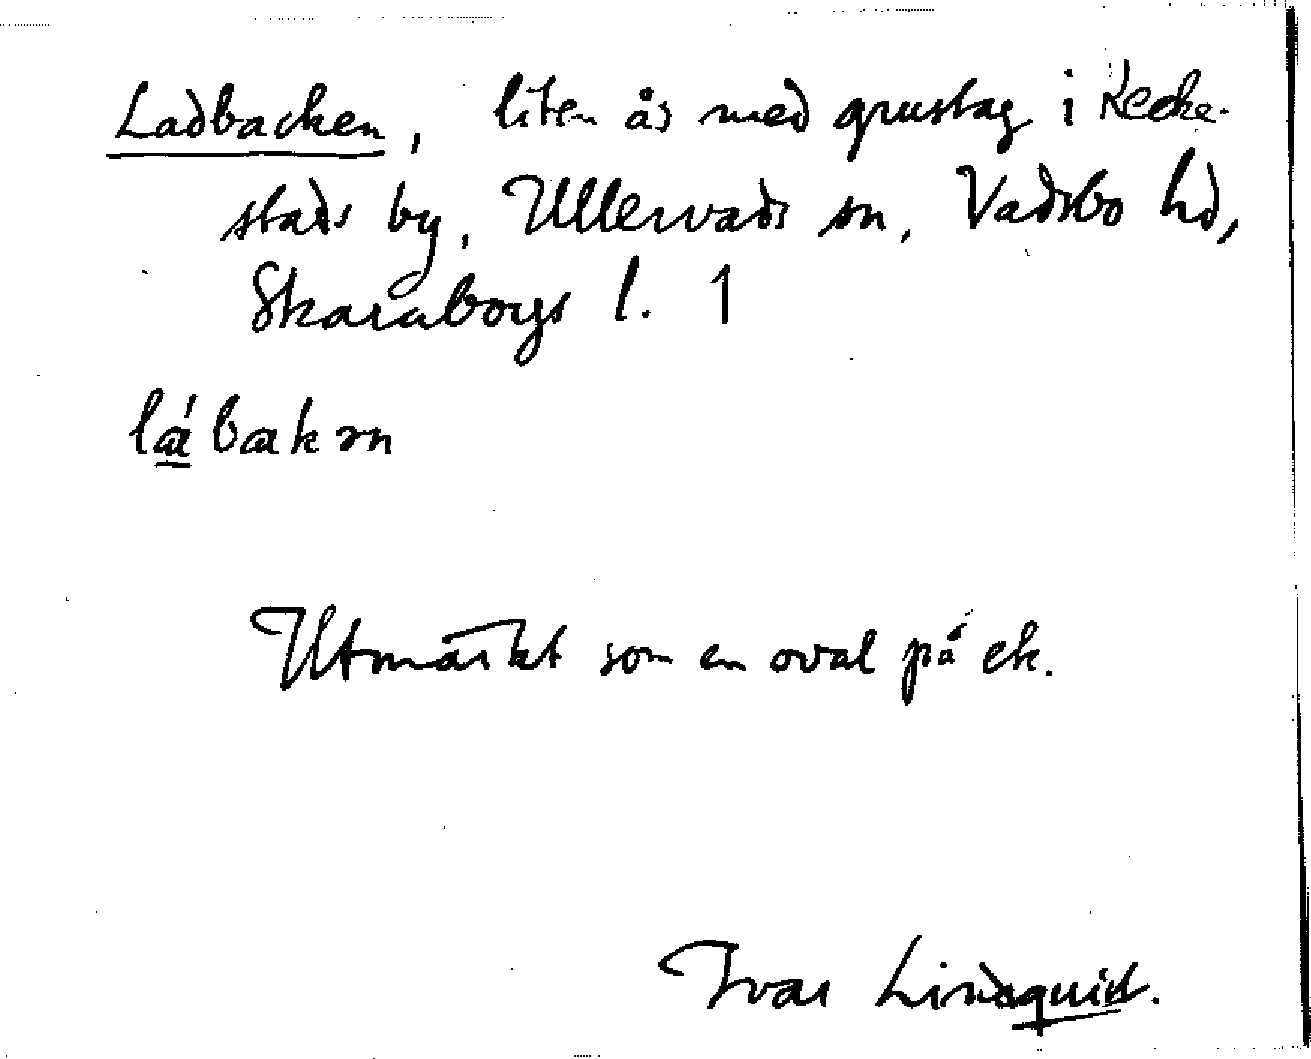 Ladbacken, liten ås med grustag i Kecke-
stads by, Ullervads sn, Vadsbo hd,
Skaraborgs l. 1
lá̱bakən
Utmärkt som en oval på ek.
Ivar Lindquist.